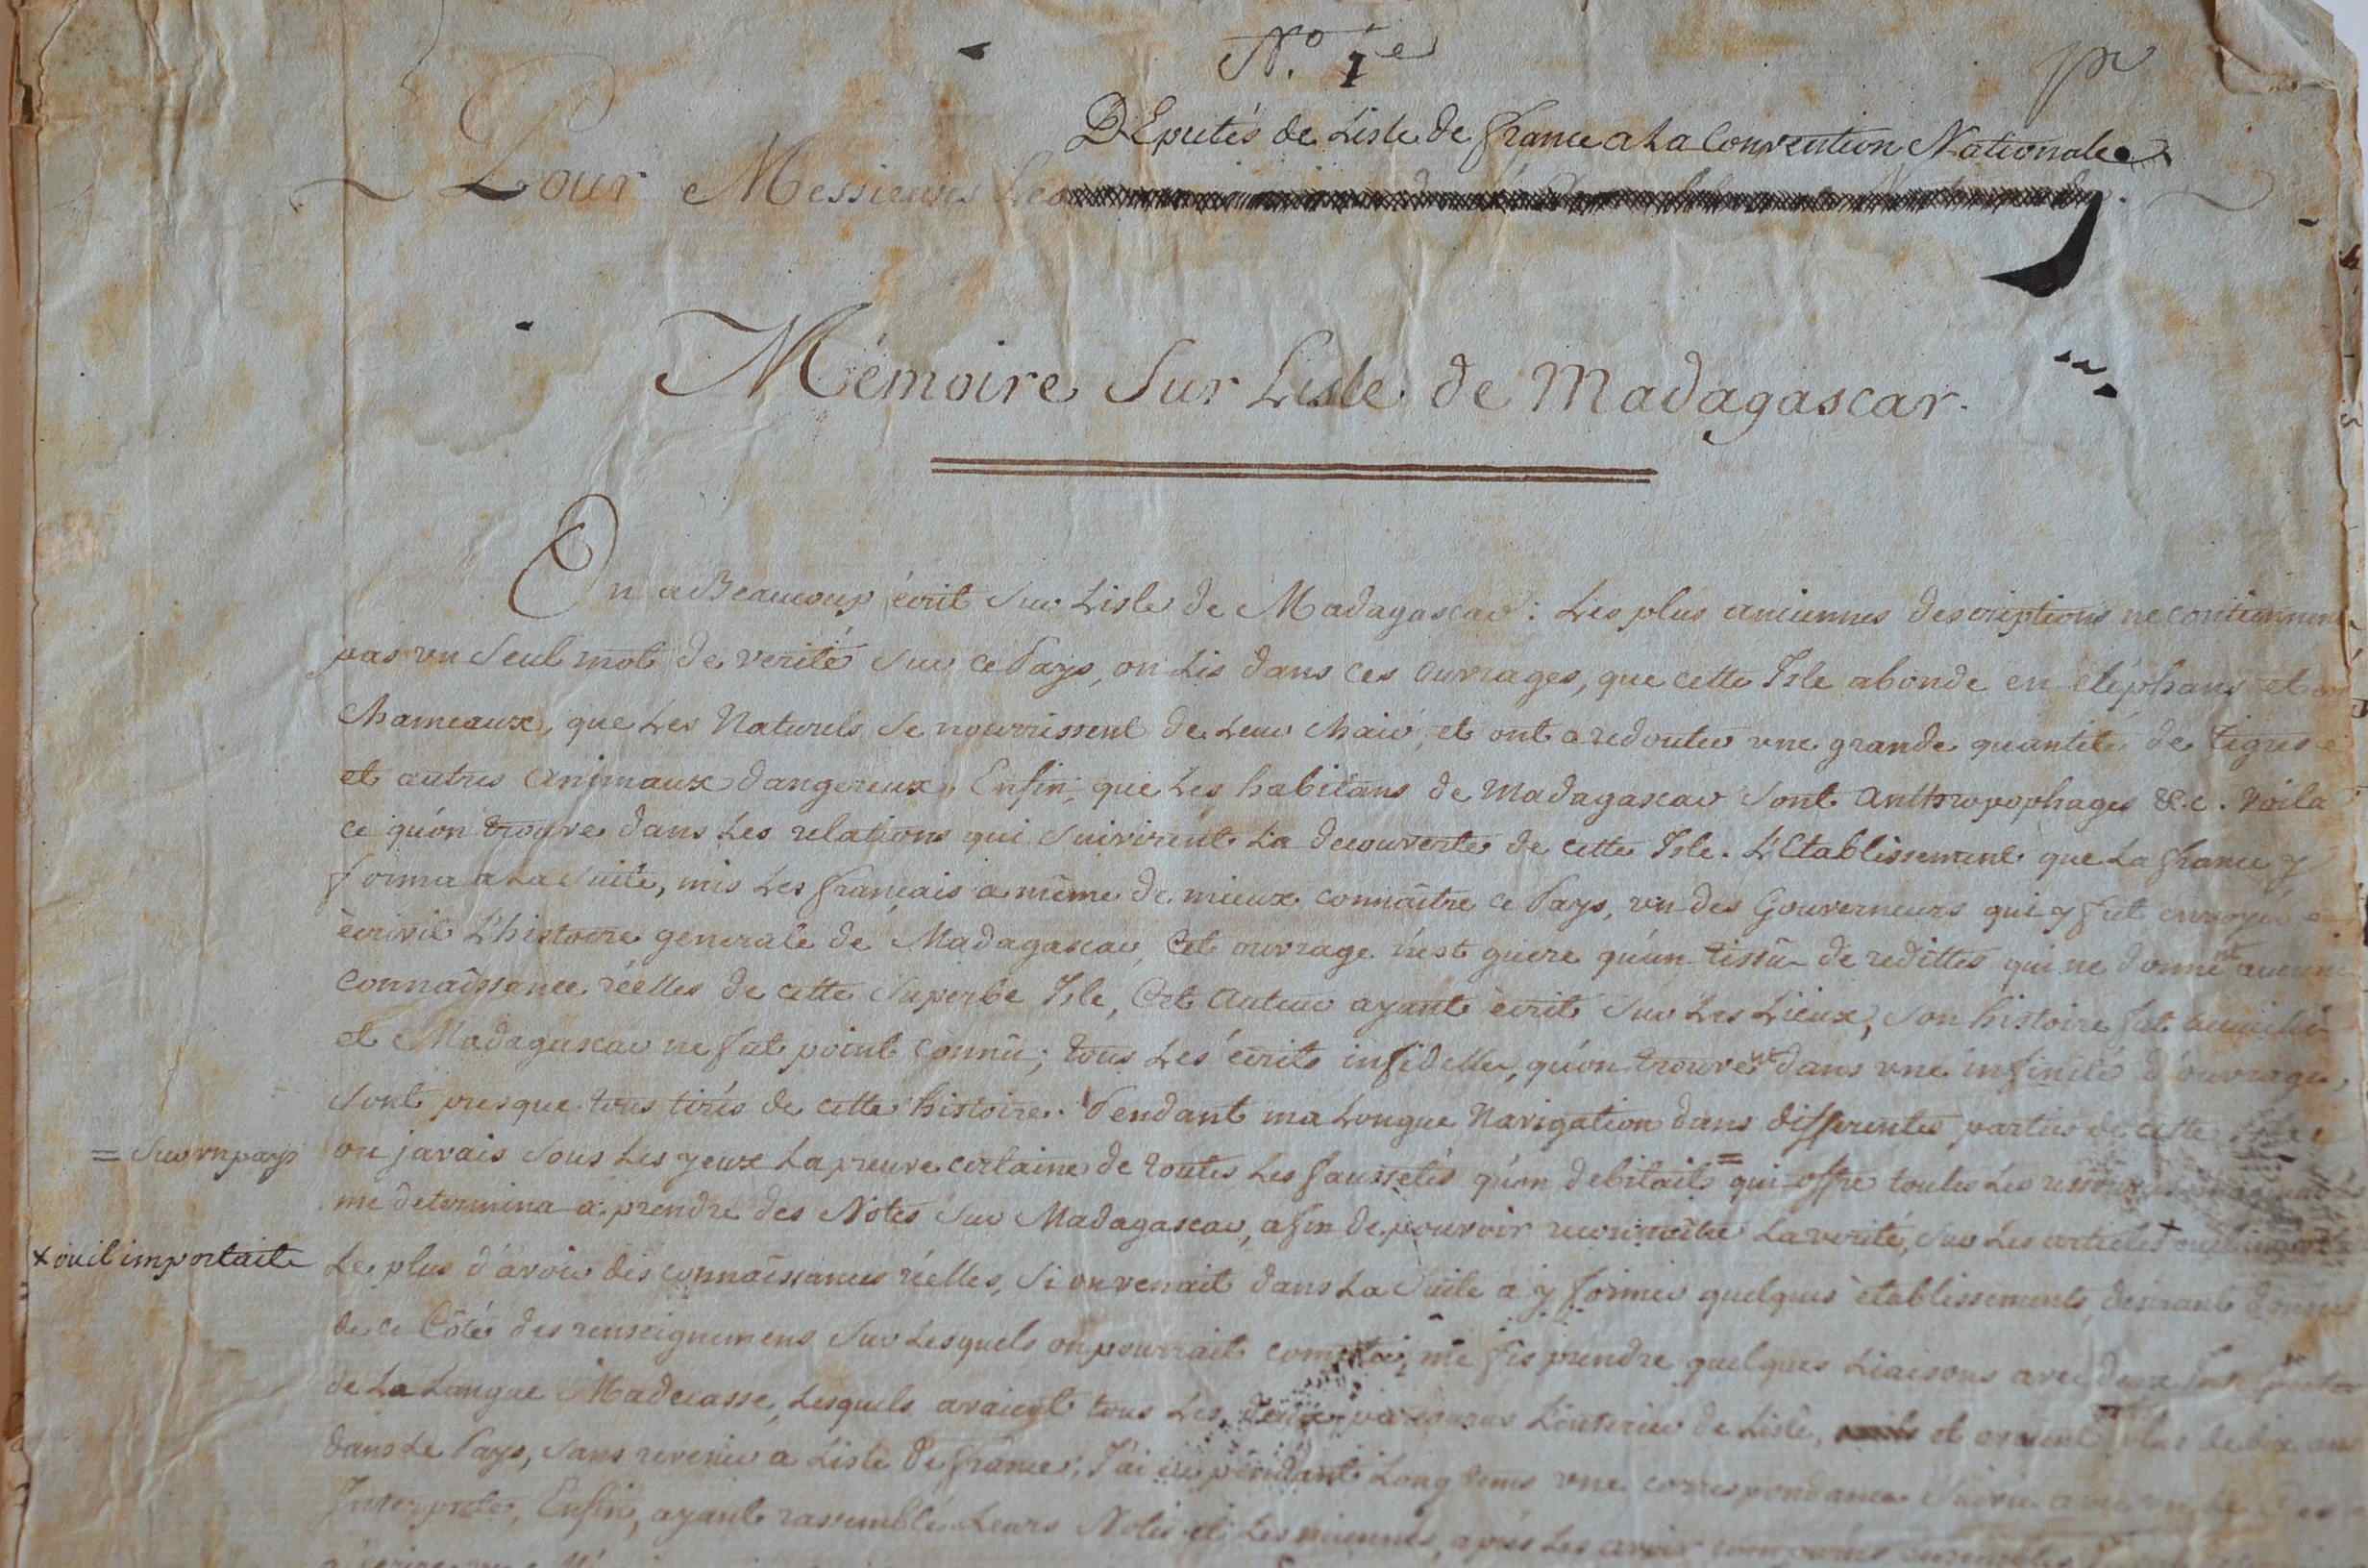 N.º 1.e
Députés de Liste de france a La Convention Nationale
Pour Messieurs Les
Mémoire Sur Lisle de Madagascar.
On a Beaucoup écrit Sur Lisle de Madagascar : Les plus anciennes descriptions ne contiennent
pas un Seul mot de verité Sur ce Pays, on Lis dans ces ouvrages, que cette Isle abonde en eléphans et en
Chameaux, que Les Naturels Se nourrissent de Leur chair, et ont a redouter une grande quantité de Tigres
et autres animaux dangereux, Enfin, que Les habitans de Madagascar Sont Anthropophages &.c. Voila
ce qu'on trouve dans Les relations qui Suivirent La decouverte de cette Isle. L'Etablissement que La france y
forma a La Suite, mis Les français a même de mieux connaître ce Pays, un des Gouverneurs qui y fut envoyé
écrivit L'histoire generale de Madagascar, Cet ouvrage n'est guere qu'un tissû de redittes qui ne donnent aucune
connaissance réelles de cette Superbe Isle, Cet Auteur ayant écrit Sur Les Lieux, Son histoire fut accueilli
et Madagascar ne fut point connû ; tous Les écrits infidelles, qu'on trouve dans une infinité d'ouvrages
Sont presque tous tirés de cette histoire. Pendant ma Longue Navigation dans differentes parties de cette Isle
= Sur un pays
ou j'avais Sous Les yeux La preuve certaine de toutes Les faussetés qu'on debitait = qui offre toutes Les
me determina a prendre des Notes Sur Madagascar, afin de pouvoir reconnaître La verité, Sur Les articles +
+ ou il importait
Le plus d'avoir des connaissances réelles, Si on venait dans La Suite a y former quelques établissements, desirant donner
de ce Côté des renseignemens Sur Lesquels on pourrait compter, me fis prendre quelques Liaisons avec deux
de La Langue Madecasse, Lesquels avaient tous Les deux parcourus L'interieur de Lisle, et avaient plus de dix ans
dans Le Pays, Sans revenir a Lisle De france. J'ai eu pendant Long tems une correspondance Suivie avec un de
Interpretes, Enfin, ayant rassemblé Leurs Notes et Les miennes, après Les avoir